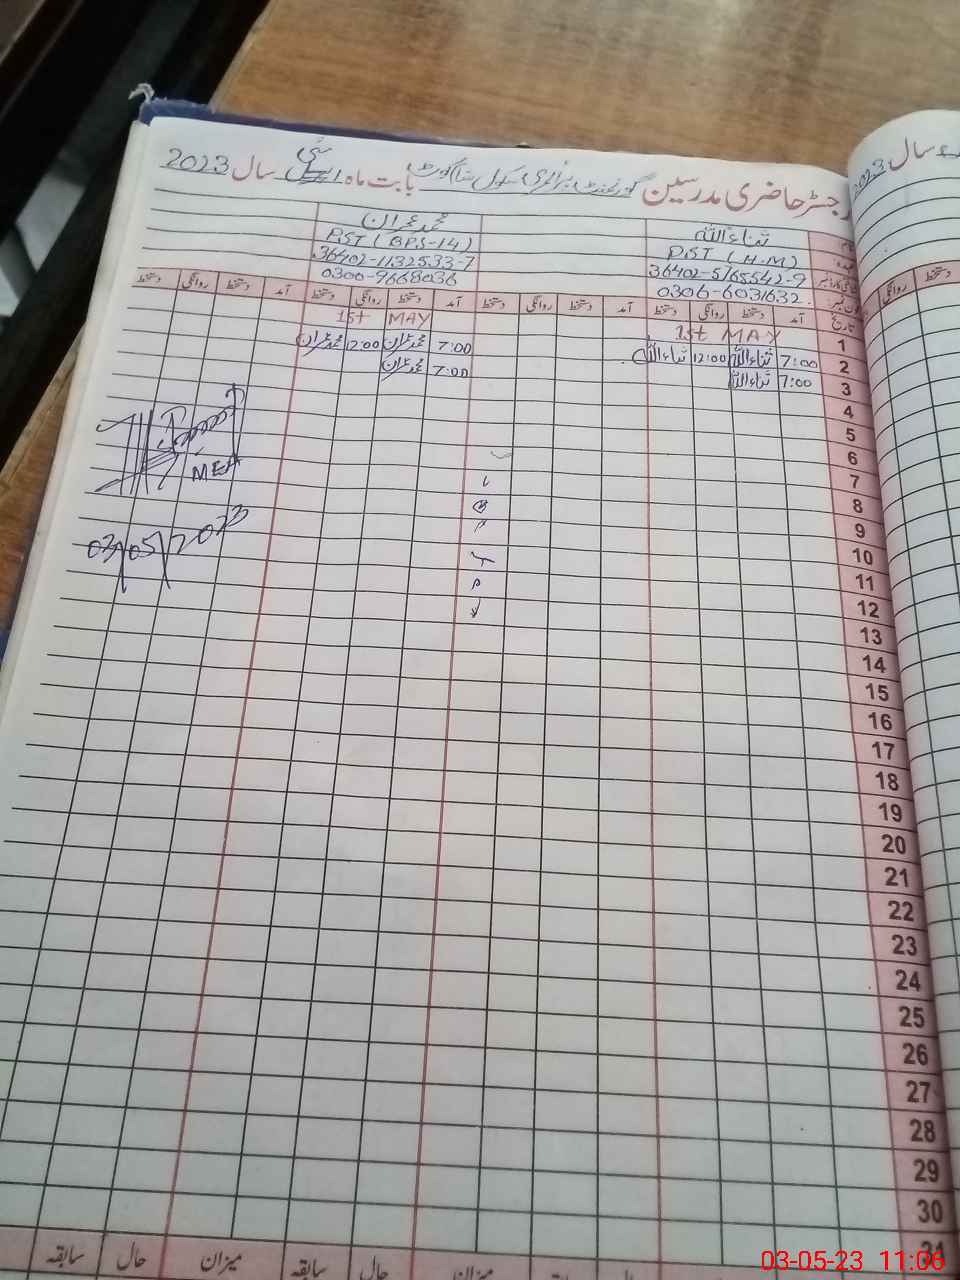 رجسٹر حاضری مدرسین گورنمنٹ پرائمری سکول بابت ماہ اپریل مئی سال 2023
ثناءاللہ
PST (H.M)
36402-5765542-9
0306-6031632
محمد عمران
PST (BPS-14)
36402-1132533-7
0300-9668036
تاریخ آمد دستخط روانگی دستخط آمد دستخط روانگی دستخط آمد دستخط روانگی دستخط آمد دستخط روانگی دستخط
1 1st MAY 1st MAY
2 7:00 ثناءاللہ 12:00 ثناءاللہ 7:00 محمد عمران 12:00 محمد عمران
3 7:00 ثناءاللہ 7:00 محمد عمران
4
5
6
7
8
9
10
11
12
13
14
15
16
17
18
19
20
21
22
23
24
25
26
27
28
29
30
31
MEA
03/05/2023
میزان حال سابقہ میزان حال سابقہ
سال 2023
روانگی دستخط
03-05-23 11:06